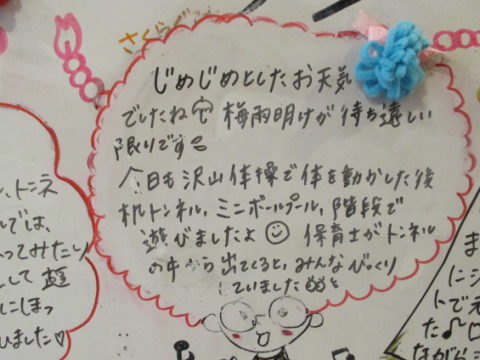 さくらぐみ
じめじめとしたお天気
でしたね 梅雨明けが待ち遠しい
限りです
今日も沢山体操で体を動かした後
机トンネル、ミニボールプール、階段で
遊びましたよ 保育士がトンネル
の中から出てくると、みんなびっくり
していました
、トンネ
ルでは、
ってみたり
して
にほっ
いました♡
ま
にシ
トで元
た♪
ながら